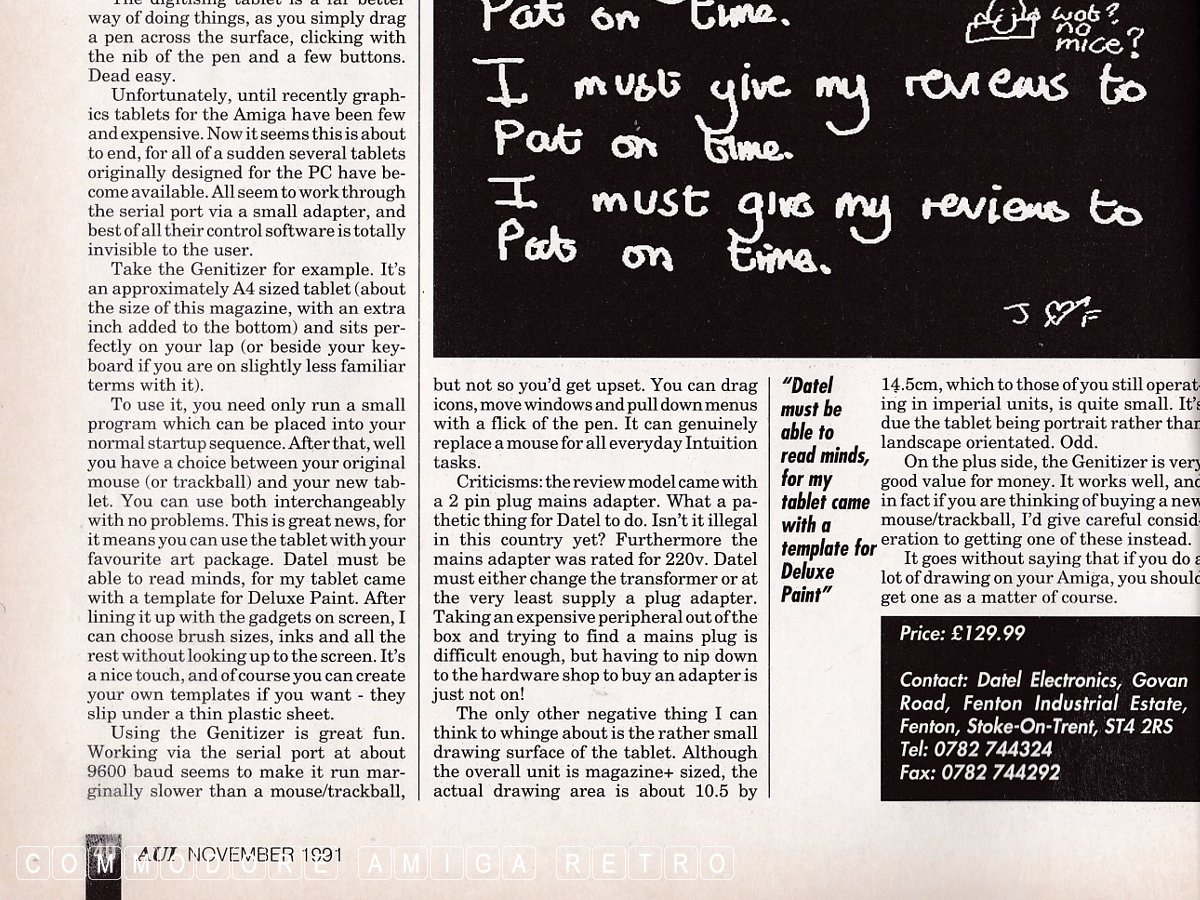 The digitising tablet is a far better
way of doing things, as you simply drag
a pen across the surface, clicking with
the nib of the pen and a few buttons.
Dead easy.
Unfortunately, until recently graph-
ics tablets for the Amiga have been few
and expensive. Now it seems this is about
to end, for all of a sudden several tablets
originally designed for the PC have be-
come available. All seem to work through
the serial port via a small adapter, and
best of all their control software is totally
invisible to the user.
Take the Genitizer for example. It's
an approximately A4 sized tablet (about
the size of this magazine, with an extra
inch added to the bottom) and sits per-
fectly on your lap (or beside your key-
board if you are on slightly less familiar
terms with it).
To use it, you need only run a small
program which can be placed into your
normal startup sequence. After that, well
you have a choice between your original
mouse (or trackball) and your new tab-
let. You can use both interchangeably
with no problems. This is great news, for
it means you can use the tablet with your
favourite art package. Datel must be
able to read minds, for my tablet came
with a template for Deluxe Paint. After
lining it up with the gadgets on screen, I
can choose brush sizes, inks and all the
rest without looking up to the screen. It's
a nice touch, and of course you can create
your own templates if you want - they
slip under a thin plastic sheet.
Using the Genitizer is great fun.
Working via the serial port at about
9600 baud seems to make it run mar-
ginally slower than a mouse/trackball,
Pat on time.
wot?
no
mice?
I must give my reviews to
Pat on time.
I must give my reviews to
Pat on time.
J F
but not so you'd get upset. You can drag
icons, move windows and pull down menus
with a flick of the pen. It can genuinely
replace a mouse for all everyday Intuition
tasks.
Criticisms: the review model came with
a 2 pin plug mains adapter. What a pa-
thetic thing for Datel to do. Isn't it illegal
in this country yet? Furthermore the
mains adapter was rated for 220v. Datel
must either change the transformer or at
the very least supply a plug adapter.
Taking an expensive peripheral out of the
box and trying to find a mains plug is
difficult enough, but having to nip down
to the hardware shop to buy an adapter is
just not on!
The only other negative thing I can
think to whinge about is the rather small
drawing surface of the tablet. Although
the overall unit is magazine+ sized, the
actual drawing area is about 10.5 by
"Datel
must be
able to
read minds,
for my
tablet came
with a
template for
Deluxe
Paint"
14.5cm, which to those of you still operat-
ing in imperial units, is quite small. It's
due the tablet being portrait rather than
landscape orientated. Odd.
On the plus side, the Genitizer is very
good value for money. It works well, and
in fact if you are thinking of buying a new
mouse/trackball, I'd give careful consid-
eration to getting one of these instead.
It goes without saying that if you do a
lot of drawing on your Amiga, you should
get one as a matter of course.
Price: £129.99
Contact: Datel Electronics, Govan
Road, Fenton Industrial Estate,
Fenton, Stoke-On-Trent, ST4 2RS
Tel: 0782 744324
Fax: 0782 744292
AUI NOVEMBER 1991
COMMODORE AMIGA RETRO